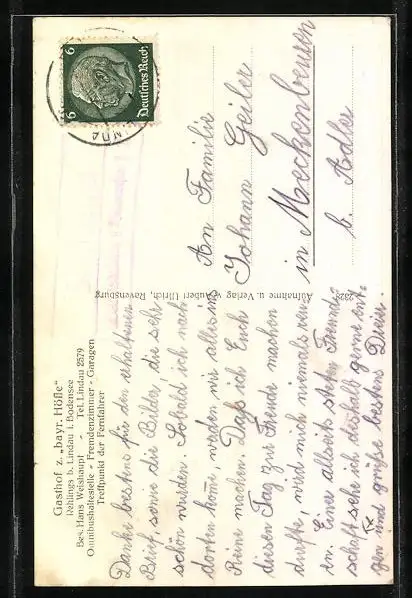 Gasthof z. „bayr. Höfle"
Rehlings b. Lindau i. Bodensee
Bes. Hans Weishaupt - Tel. Lindau 2579
Omnibushaltestelle - Fremdenzimmer - Garagen
Treffpunkt der Fernfahrer
Danke bestens für den erhaltenen
Brief, sowie die Bilder, die sehr
schön wurden. Sobald ich nach
dorten kome, werden wir alles ins
Reine machen. Daß ich Euch
diesen Tag zur Freude machen
durfte, wird mich niemals reu-
en. Eurer allseits steten Freund-
schaft sehe ich deshalb gerne ent-
gegen und grüße bestens Dreier.
2328 Aufnahme u. Verlag v. Aubert Ullrich, Ravensburg
6 Deutsches Reich 6
An Familie
Johann Geiler
in Meckenbeuren
b. Adler